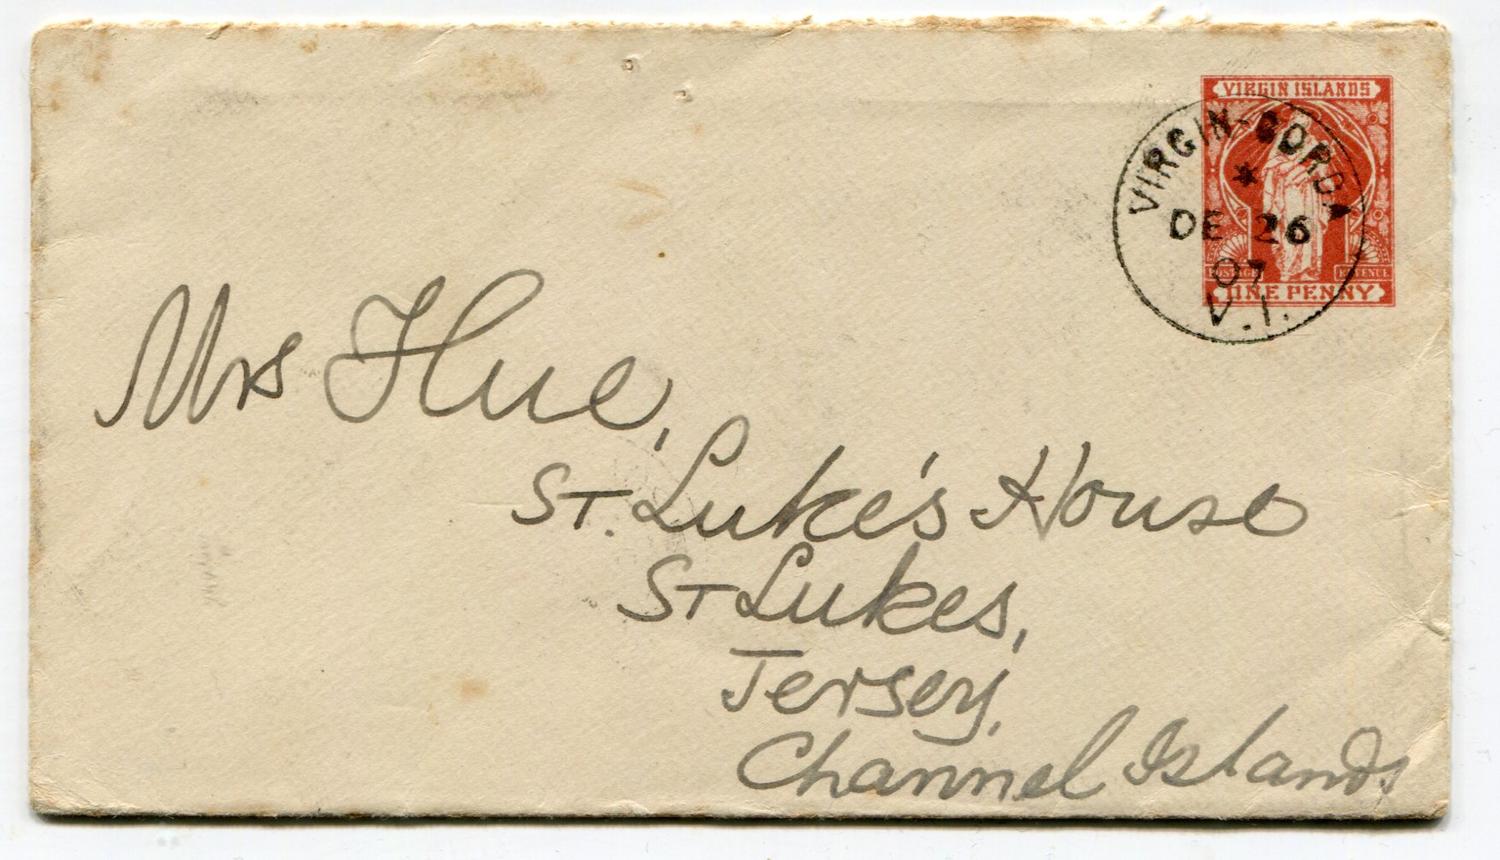 VIRGIN ISLANDS
POSTAGE REVENUE
ONE PENNY
VIRGIN-GORDA
*
DE 26
07
V.I.
Mrs Hue,
ST. Luke's House
ST Lukes,
Jersey,
Channel Islands